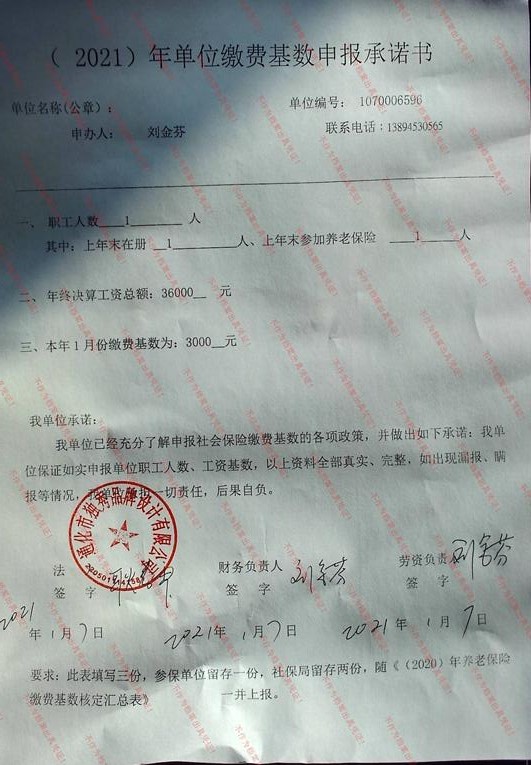 （ 2021）年单位缴费基数申报承诺书
单位名称(公章)： 单位编号： 1070006596
申办人： 刘金芬 联系电话：13894530565
一、 职工人数__1______ 人
其中：上年末在册 __1________人、上年末参加养老保险 ____1_____人
二、年终决算工资总额：36000__ 元
三、本年1月份缴费基数为：3000__元
我单位承诺：
我单位已经充分了解申报社会保险缴费基数的各项政策，并做出如下承诺：我单
位保证如实申报单位职工人数、工资基数，以上资料全部真实、完整，如出现漏报、瞒
报等情况，我单位愿担一切责任，后果自负。
通化市独秀品牌设计有限公司
法 财务负责人 劳资负责 刘金芬
签 字 签 字 刘金芬 签 字
2021年1月7日 2021年1月7日 2021年1月7日
要求：此表填写三份，参保单位留存一份，社保局留存两份，随《（2020）年养老保险
缴费基数核定汇总表》 一并上报。